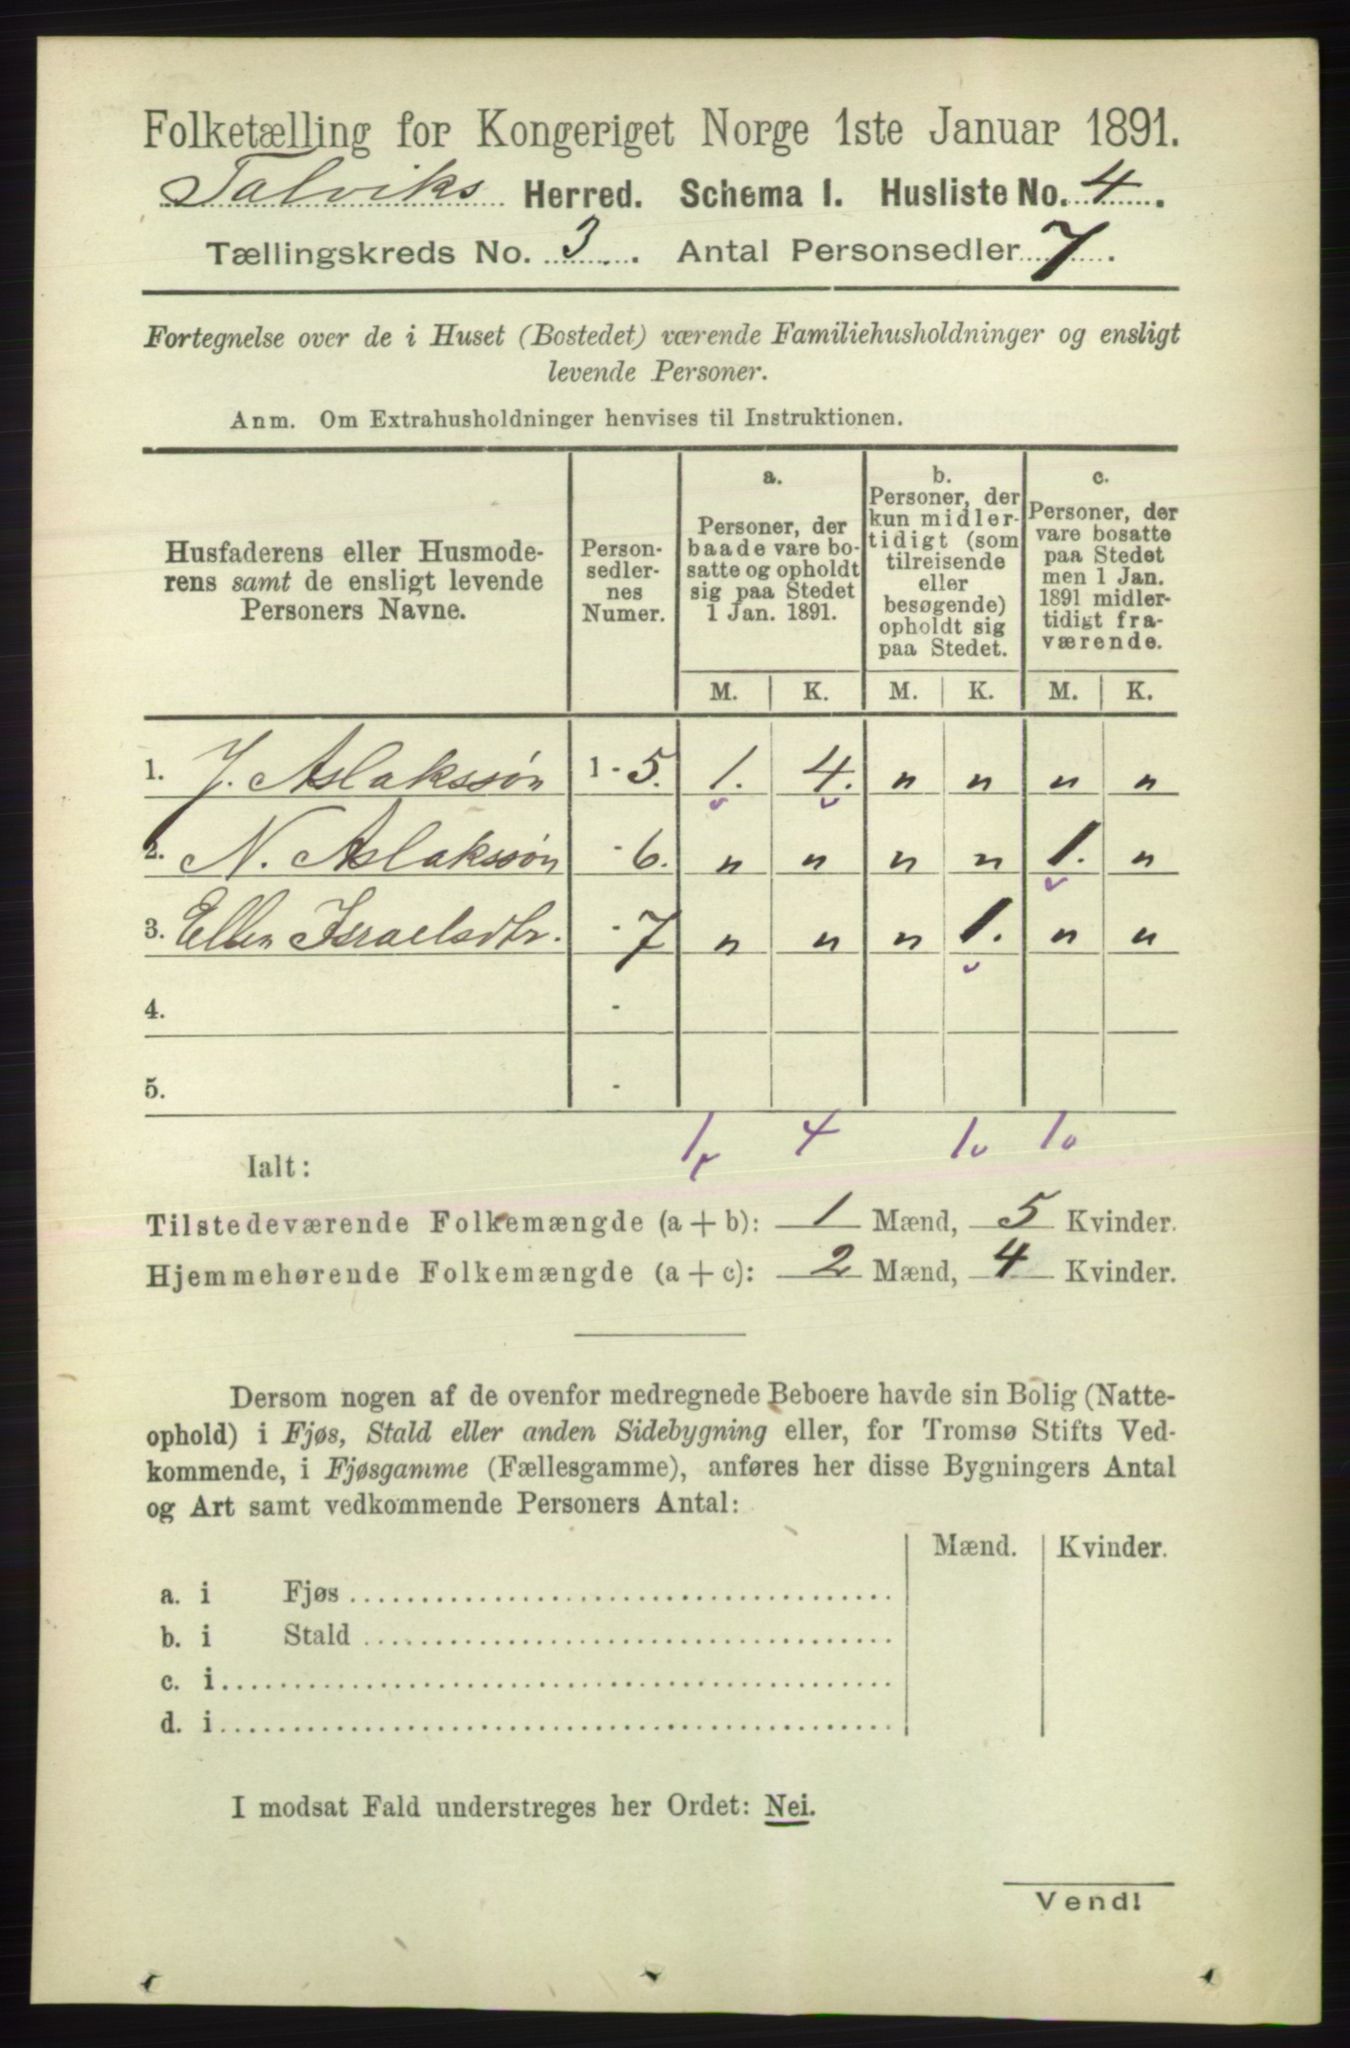 Folketælling for Kongeriget Norge 1ste Januar 1891.
Talviks Herred. Schema I. Husliste No. 4.
Tællingskreds No. 3. Antal Personsedler 7.
Fortegnelse over de i Huset (Bostedet) værende Familiehusholdninger og ensligt
levende Personer.
Anm. Om Extrahusholdninger henvises til Instruktionen.
Husfaderens eller Husmode-
rens samt de ensligt levende
Personers Navne.
Person-
sedler-
nes
Numer.
a.
Personer, der
baade vare bo-
satte og opholdt
sig paa Stedet
1 Jan. 1891.
b.
Personer, der
kun midler-
tidigt (som
tilreisende
eller
besøgende)
opholdt sig
paa Stedet.
c.
Personer, der
vare bosatte
paa Stedet
men 1 Jan.
1891 midler-
tidigt fra-
værende.
M. K. M. K. M. K.
1. J. Aslakssøn 1 - 5. 1. 4. " " " "
2. N. Aslakssøn - 6. " " " " 1. "
3. Ellen Israelsdtr. - 7 " " " 1. " "
4. -
5. -
1 4 1 1
Ialt:
Tilstedeværende Folkemængde (a + b): 1 Mænd, 5 Kvinder.
Hjemmehørende Folkemængde (a + c): 2 Mænd, 4 Kvinder.
Dersom nogen af de ovenfor medregnede Beboere havde sin Bolig (Natte-
ophold) i Fjøs, Stald eller anden Sidebygning eller, for Tromsø Stifts Ved-
kommende, i Fjøsgamme (Fællesgamme), anføres her disse Bygningers Antal
og Art samt vedkommende Personers Antal:
Mænd. Kvinder.
a. i Fjøs
b. i Stald
c. i
d. i
I modsat Fald understreges her Ordet: Nei.
Vend!